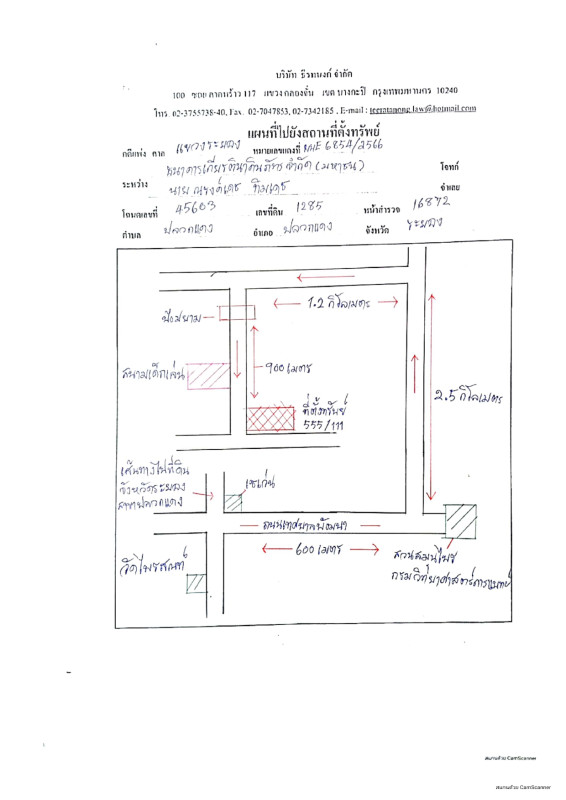 บริษัท ธีรทนงค์ จำกัด
100 ซอย ลาดพร้าว 117 แขวง คลองจั่น เขต บางกะปิ กรุงเทพมหานคร 10240
โทร. 02-3755738-40, Fax. 02-7047853, 02-7342185 , E-mail : teeratanong.law@hotmail.com
แผนที่ไปยังสถานที่ตั้งทรัพย์
คดีแพ่ง ศาล แขวงระยอง หมายเลขแดงที่ ผบE 6854/2566
ธนาคารเกียรตินาคินภัทร จำกัด (มหาชน) โจทก์
ระหว่าง
นาย ณรงค์เดช ทิมเดช จำเลย
โฉนดเลขที่ 45603 เลขที่ดิน 1285 หน้าสำรวจ 16872
ตำบล ปลวกแดง อำเภอ ปลวกแดง จังหวัด ระยอง
1.2 กิโลเมตร
ป้อมยาม
สนามเด็กเล่น
900 เมตร
ที่ตั้งทรัพย์
555/111
2.5 กิโลเมตร
เส้นทางไปที่ดิน
จังหวัดระยอง
สาขาปลวกแดง
เซเว่น
ถนนเทศบาลพัฒนา
600 เมตร
วัดไพรสณฑ์
สวนสมุนไพร
กรมวิทยาศาสตร์การแพทย์
สแกนด้วย CamScanner
สแกนด้วย CamScanner